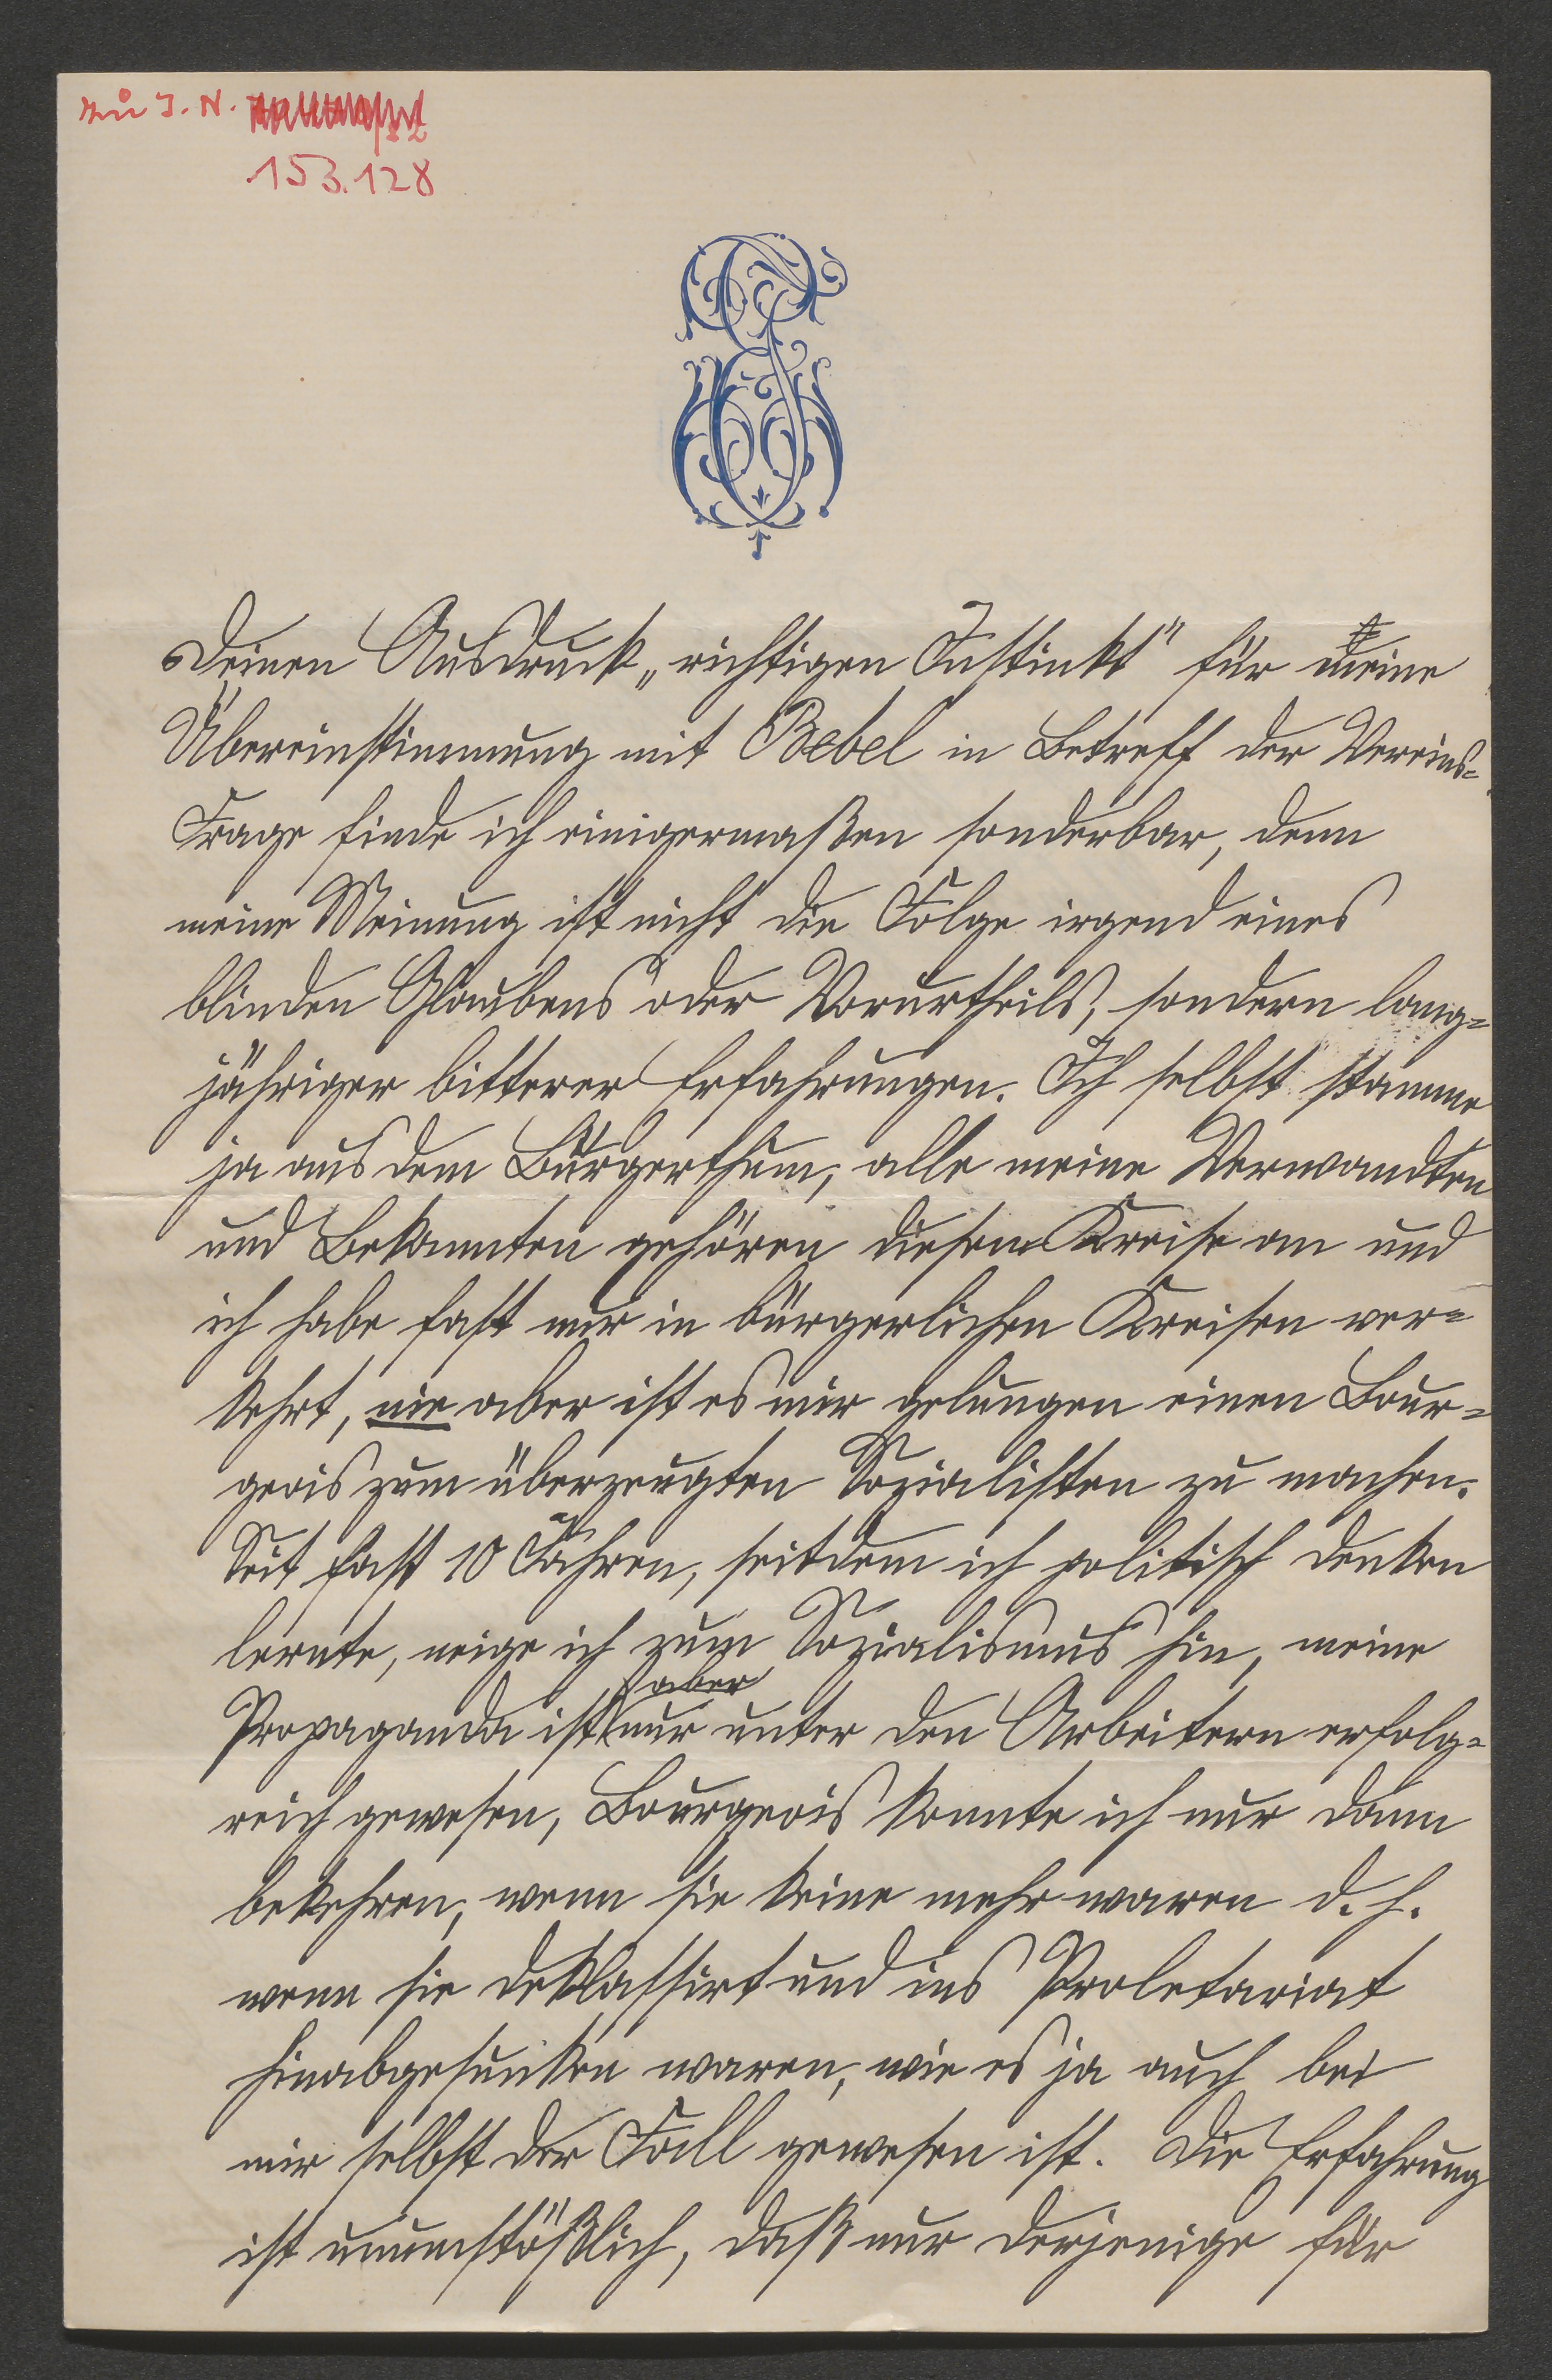 zu I. N.
153.128
Deinen Ausdruck „richtigen Instinkt" für meine
Übereinstimmung mit Bebel in Betreff der Vereins=
Frage finde ich einigermaßen sonderbar, denn
meine Meinung ist nicht die Folge irgend eines
blinden Glaubens oder Vorurtheils, sondern lang=
jähriger bitterer Erfahrungen. Ich selbst stamme
ja aus dem Bürgerthum, alle meine Verwandten
und Bekannten gehören diesem Kreise an und
ich habe fast nur in bürgerlichen Kreisen ver=
kehrt, nie aber ist es mir gelungen einen Bour=
geois zum überzeugten Sozialisten zu machen.
Seit fast 10 Jahren, seitdem ich politisch denken
lernte, neige ich zum Sozialismus hin, meine
aber
Propaganda ist nur unter den Arbeitern erfolg=
reich gewesen, Bourgeois konnte ich nur dann
bekehren, wenn sie keine mehr waren d. h.
wenn sie deklassirt und ins Proletariat
hinabgesunken waren, wie es ja auch bei
mir selbst der Fall gewesen ist. Die Erfahrung
ist unumstößlich, daß nur derjenige für